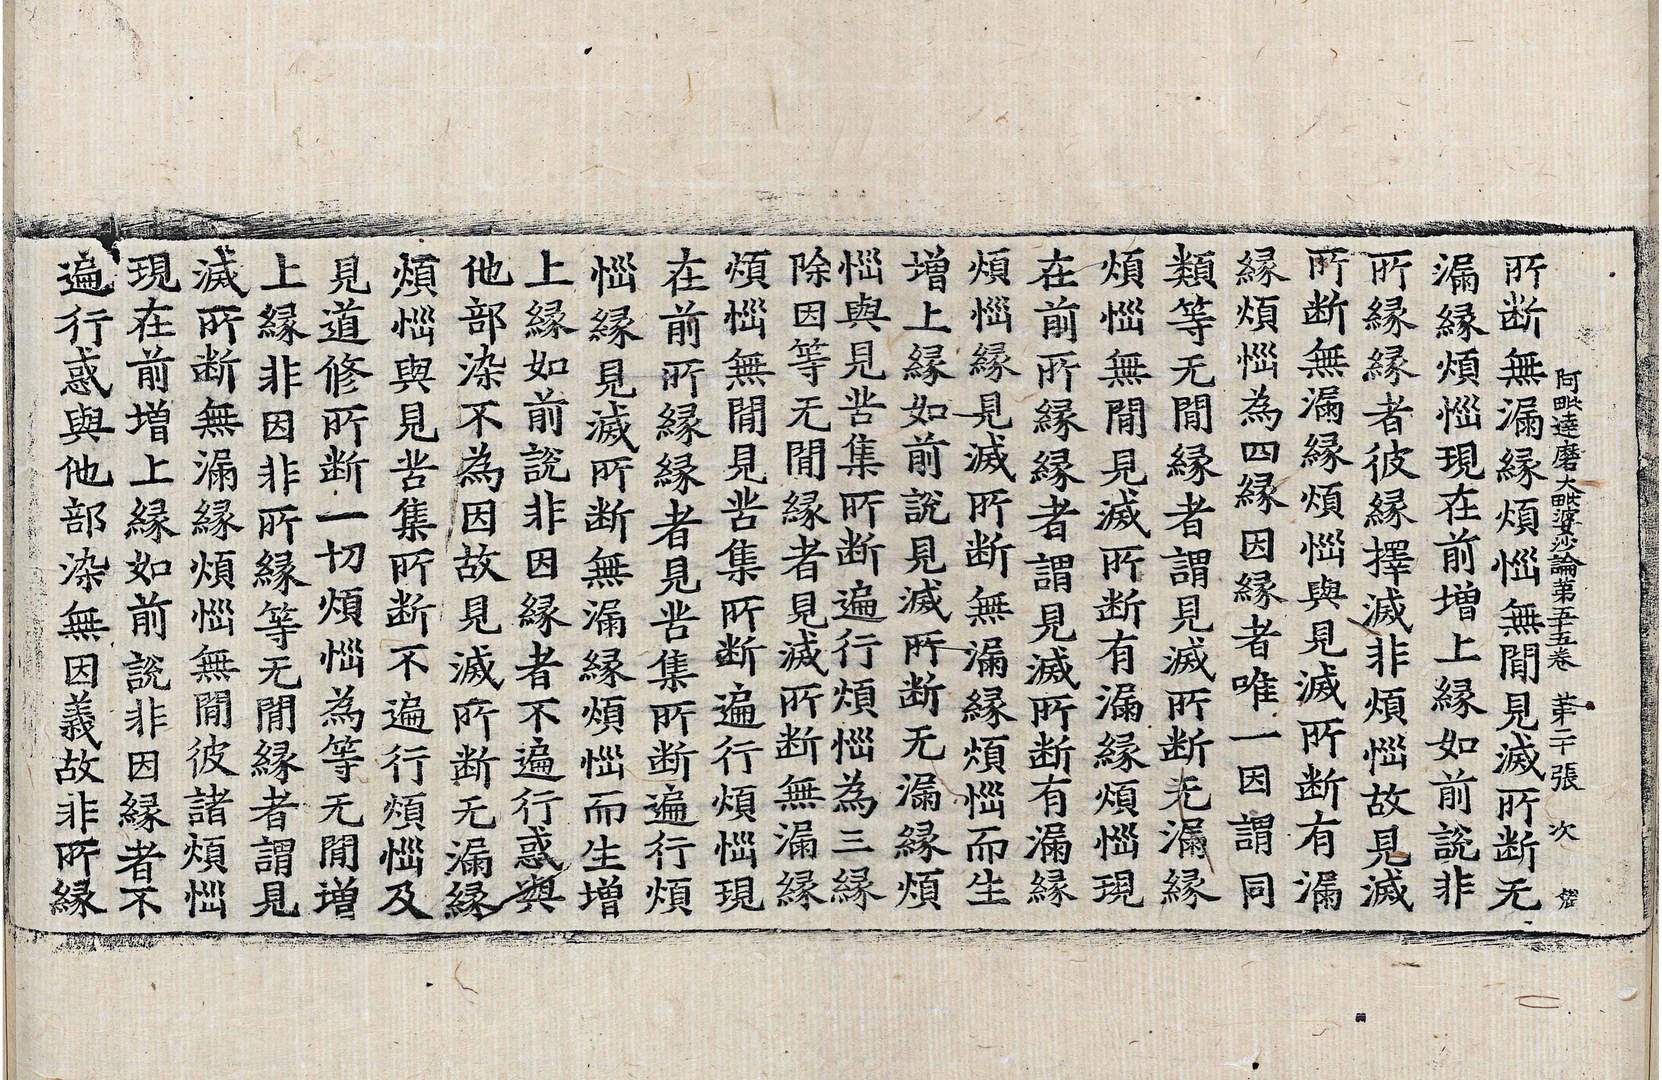 阿毗達磨大毗婆沙論第五十五卷 苐二十張 次
所断無漏縁煩惱無閒見滅所断无
漏縁煩惱現在前增上縁如前說非
所縁縁者彼縁擇滅非煩惱故見滅
所断無漏縁煩惱與見滅所断有漏
縁煩惱為四縁因縁者唯一因謂同
類等无閒縁者謂見滅所断无漏縁
煩惱無閒見滅所断有漏縁煩惱現
在前所縁縁者謂見滅所断有漏縁
煩惱縁見滅所断無漏縁煩惱而生
增上縁如前說見滅所断无漏縁煩
惱與見苦集所断遍行煩惱為三縁
除因等无閒縁者見滅所断無漏縁
煩惱無閒見苦集所断遍行煩惱現
在前所縁縁者見苦集所断遍行煩
惱縁見滅所断無漏縁煩惱而生增
上縁如前說非因縁者不遍行惑與
他部染不為因故見滅所断无漏縁
煩惱與見苦集所断不遍行煩惱及
見道修所断一切煩惱為等无閒增
上縁非因非所縁等无閒縁者謂見
滅所断無漏縁煩惱無閒彼諸煩惱
現在前增上縁如前說非因縁者不
遍行惑與他部染無因義故非所縁